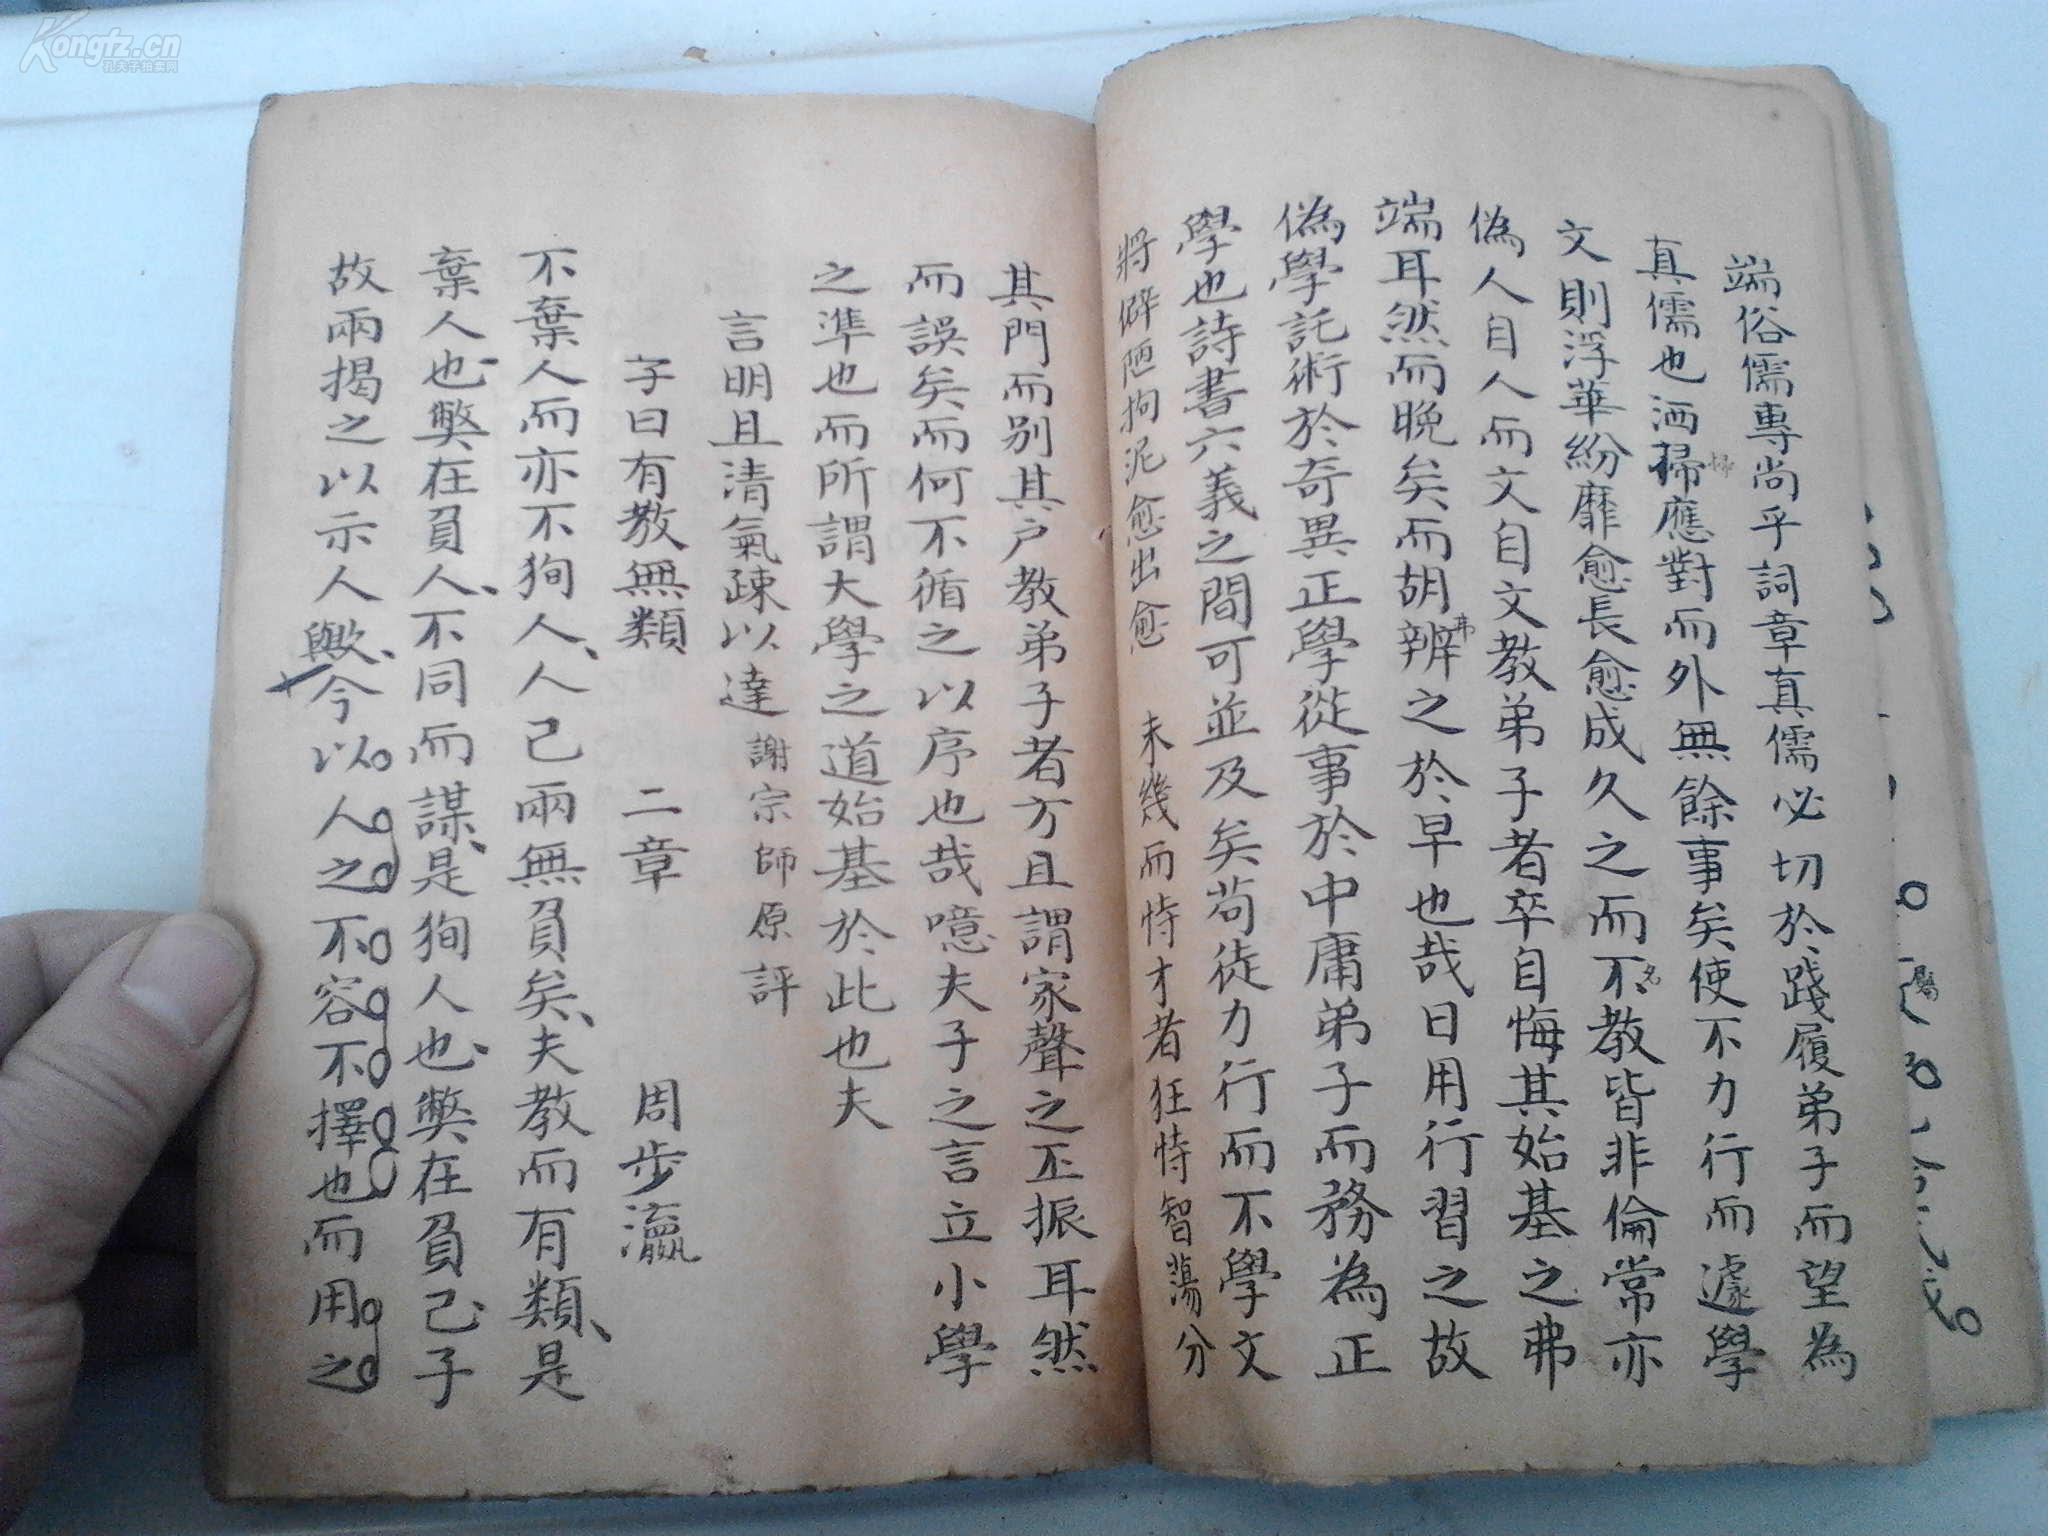 端俗儒專尚乎詞章真儒必切於踐履弟子而望為
真儒也洒掃應對而外無餘事矣使不力行而遽學
文則浮華紛靡愈長愈成久之而不教皆非倫常亦
偽人自人而文自文教弟子者卒自悔其始基之弗
端耳然而晚矣而胡辨之於早也哉日用行習之故
偽學託術於奇異正學從事於中庸弟子而務為正
學也詩書六義之間可並及矣苟徒力行而不學文
將僻陋拘泥愈出愈 未幾而恃才者狂恃智蕩分
其門而別其户教弟子者方且謂家聲之丕振耳然
而誤矣而何不循之以序也哉噫夫子之言立小學
之準也而所謂大學之道始基於此也夫
言明且清氣疎以達 謝宗師原評
子曰有教無類 二章 周步瀛
不棄人而亦不狥人人己兩無負矣夫教而有類是
棄人也獘在負人不同而謀是狥人也獘在負己子
故兩揭之以示人歟今以人之不容不擇也而用之
Kongfz.cn
孔夫子拍卖网